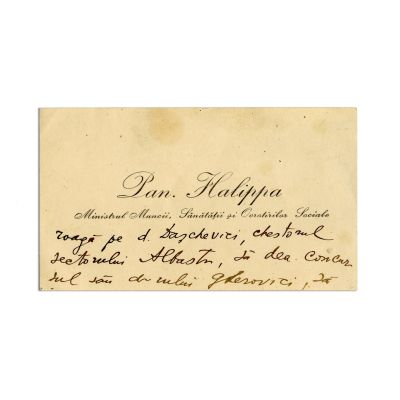 Pan. Halippa
Ministrul Muncii, Sănătății și Ocrotirilor Sociale
roagă pe d. Dașchevici, chestorul
sectorului Albastru, să dea concur
sul său d-nului Gherovici, să